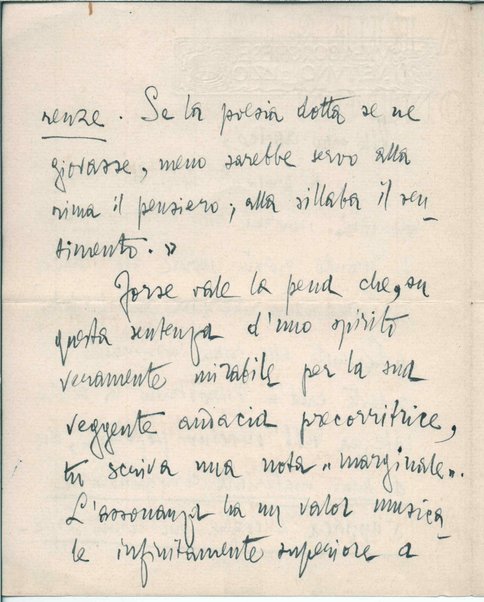 renze. Se la poesia dotta se ne
giovasse, meno sarebbe servo alla
rima il pensiero; alla sillaba il sen-
timento."
Forse vale la pena che, su
questa sentenza d'uno spirito
veramente mirabile per la sua
veggente audacia precorritrice,
tu scriva una nota "marginale".
L'assonanza ha un valor musica-
le infinitamente superiore a